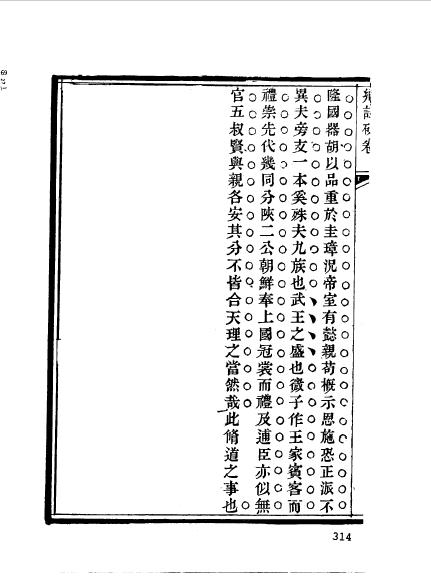 隆國器胡以品重於圭璋況帝室有懿親苟概示恩施恐正派不
異夫旁支一本奚殊夫九族也武王之盛也微子作王家賓客而
禮崇先代幾同分陝二公朝鮮奉上國冠裳而禮及逋臣亦似無
官五叔賢與親各安其分不皆合天理之當然哉此脩道之事也
314